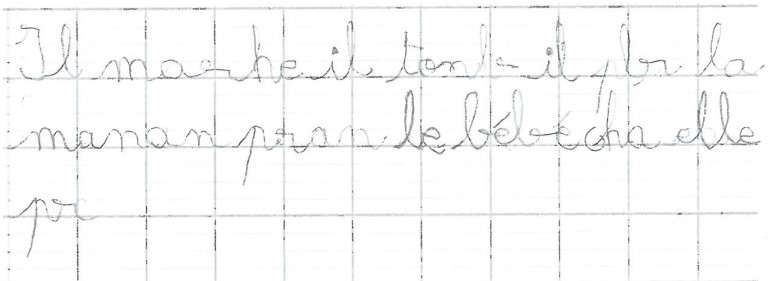 Il marche il tonb il plr la
manan pran le bébé cha elle
pr